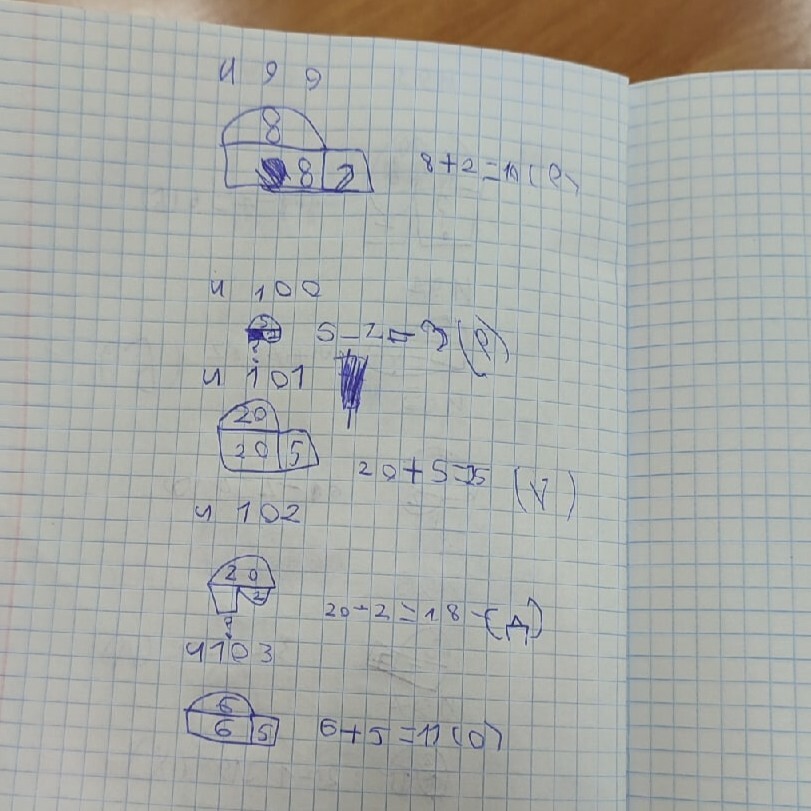 ч 99
8
8 2
8+2=10 (р)
ч 100
5-2=3 (р)
?
ч 101
20
20 5
20+5=25 (У)
ч 102
20
2
20-2=18 (Д)
?
ч 103
6
6 5
6+5=11 (0)